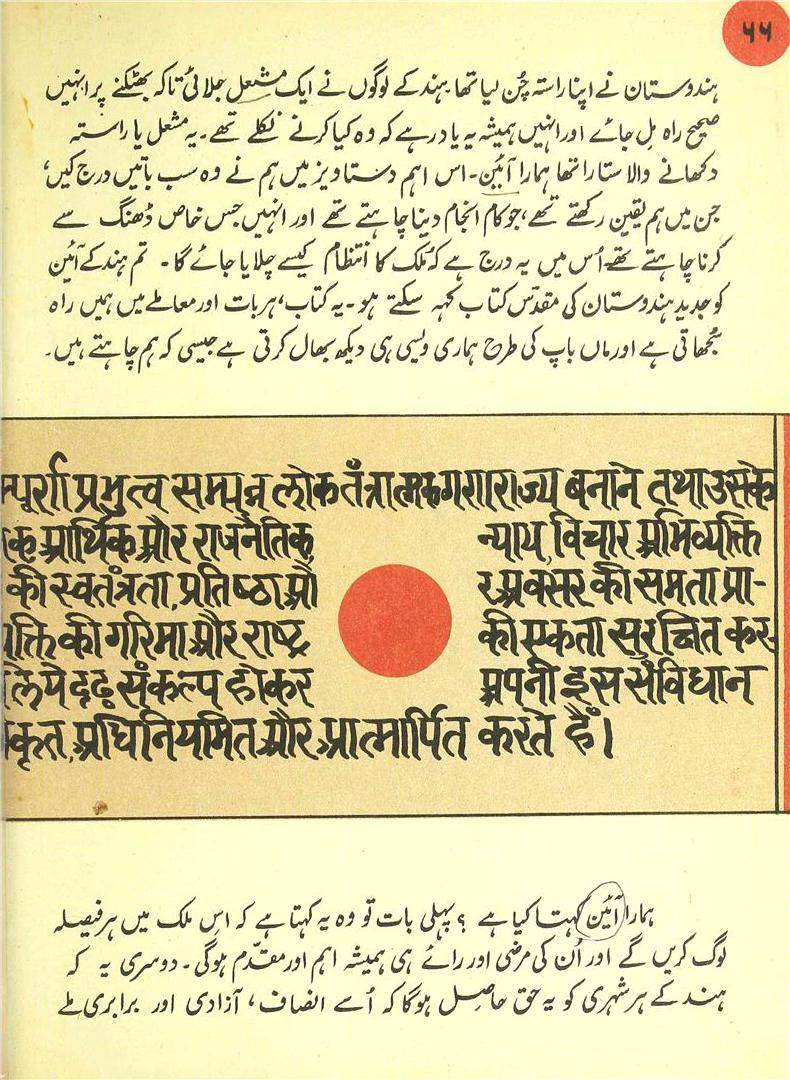 ۵۵
ہندوستان نے اپنا راستہ چُن لیا تھا۔ ہند کے لوگوں نے ایک مشعل جلائی تاکہ بھٹکنے پر انہیں
صحیح راہ مل جائے اور انہیں ہمیشہ یہ یاد رہے کہ وہ کیا کرنے نکلے تھے۔ یہ مشعل یا راستہ
دکھانے والا ستارا تھا ہمارا آئین۔ اس اہم دستاویز میں ہم نے وہ سب باتیں درج کیں،
جن میں ہم یقین رکھتے تھے، جو کام انجام دینا چاہتے تھے اور انہیں جس خاص ڈھنگ سے
کرنا چاہتے تھے۔ اُس میں یہ درج ہے کہ ملک کا انتظام کیسے چلایا جائے گا۔ تم ہند کے آئین
کو جدید ہندوستان کی مقدّس کتاب کہہ سکتے ہو۔ یہ کتاب، ہر بات اور معاملے میں ہمیں راہ
سُجھاتی ہے اور ماں باپ کی طرح ہماری ویسی ہی دیکھ بھال کرتی ہے جیسی کہ ہم چاہتے ہیں۔
म्पूर्ण प्रभुत्व सम्पन्न लोकतंत्रात्मक गणराज्य बनाने तथा उसके
क, आर्थिक और राजनैतिक न्याय, विचार, अभिव्यक्ति
की स्वतंत्रता, प्रतिष्ठा औ र अवसर की समता प्रा-
यक्ति की गरिमा और राष्ट्र की एकता सुरक्षित कर
लिये दृढ़ संकल्प होकर अपनी इस संविधान
कृत, अधिनियमित और आत्मार्पित करते हैं।
ہمارا آئین کہتا کیا ہے؟ پہلی بات تو وہ یہ کہتا ہے کہ اس ملک میں ہر فیصلہ
لوگ کریں گے اور اُن کی مرضی اور رائے ہی ہمیشہ اہم اور مقدّم ہوگی۔ دوسری یہ کہ
ہند کے ہر شہری کو یہ حق حاصل ہوگا کہ اُسے انصاف، آزادی اور برابری ملے